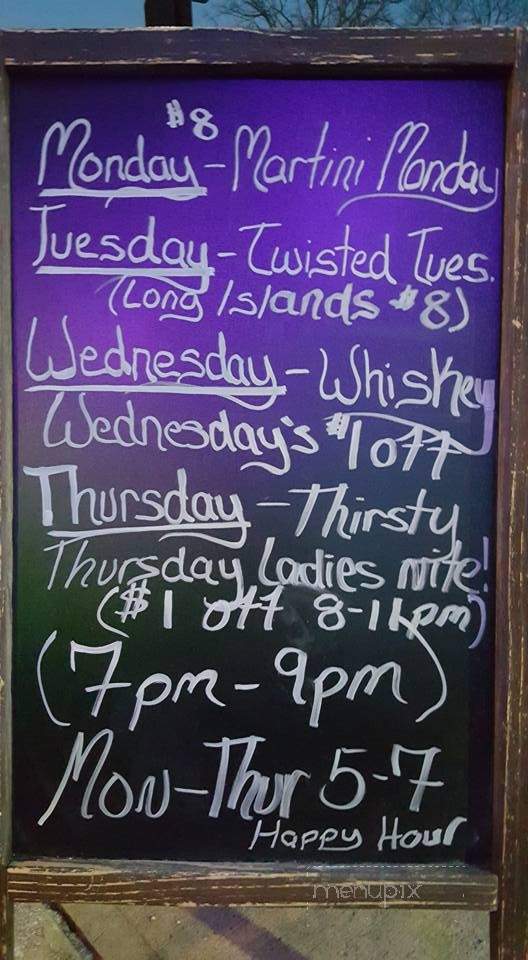 $8
Monday - Martini Monday
Tuesday - Twisted Tues.
(Long Islands $8)
Wednesday - Whiskey
Wednesday's $1 off
Thursday - Thirsty
Thursday Ladies nite!
($1 off 8-11pm)
(7pm - 9pm)
Mon - Thur 5-7
Happy Hour
menupix